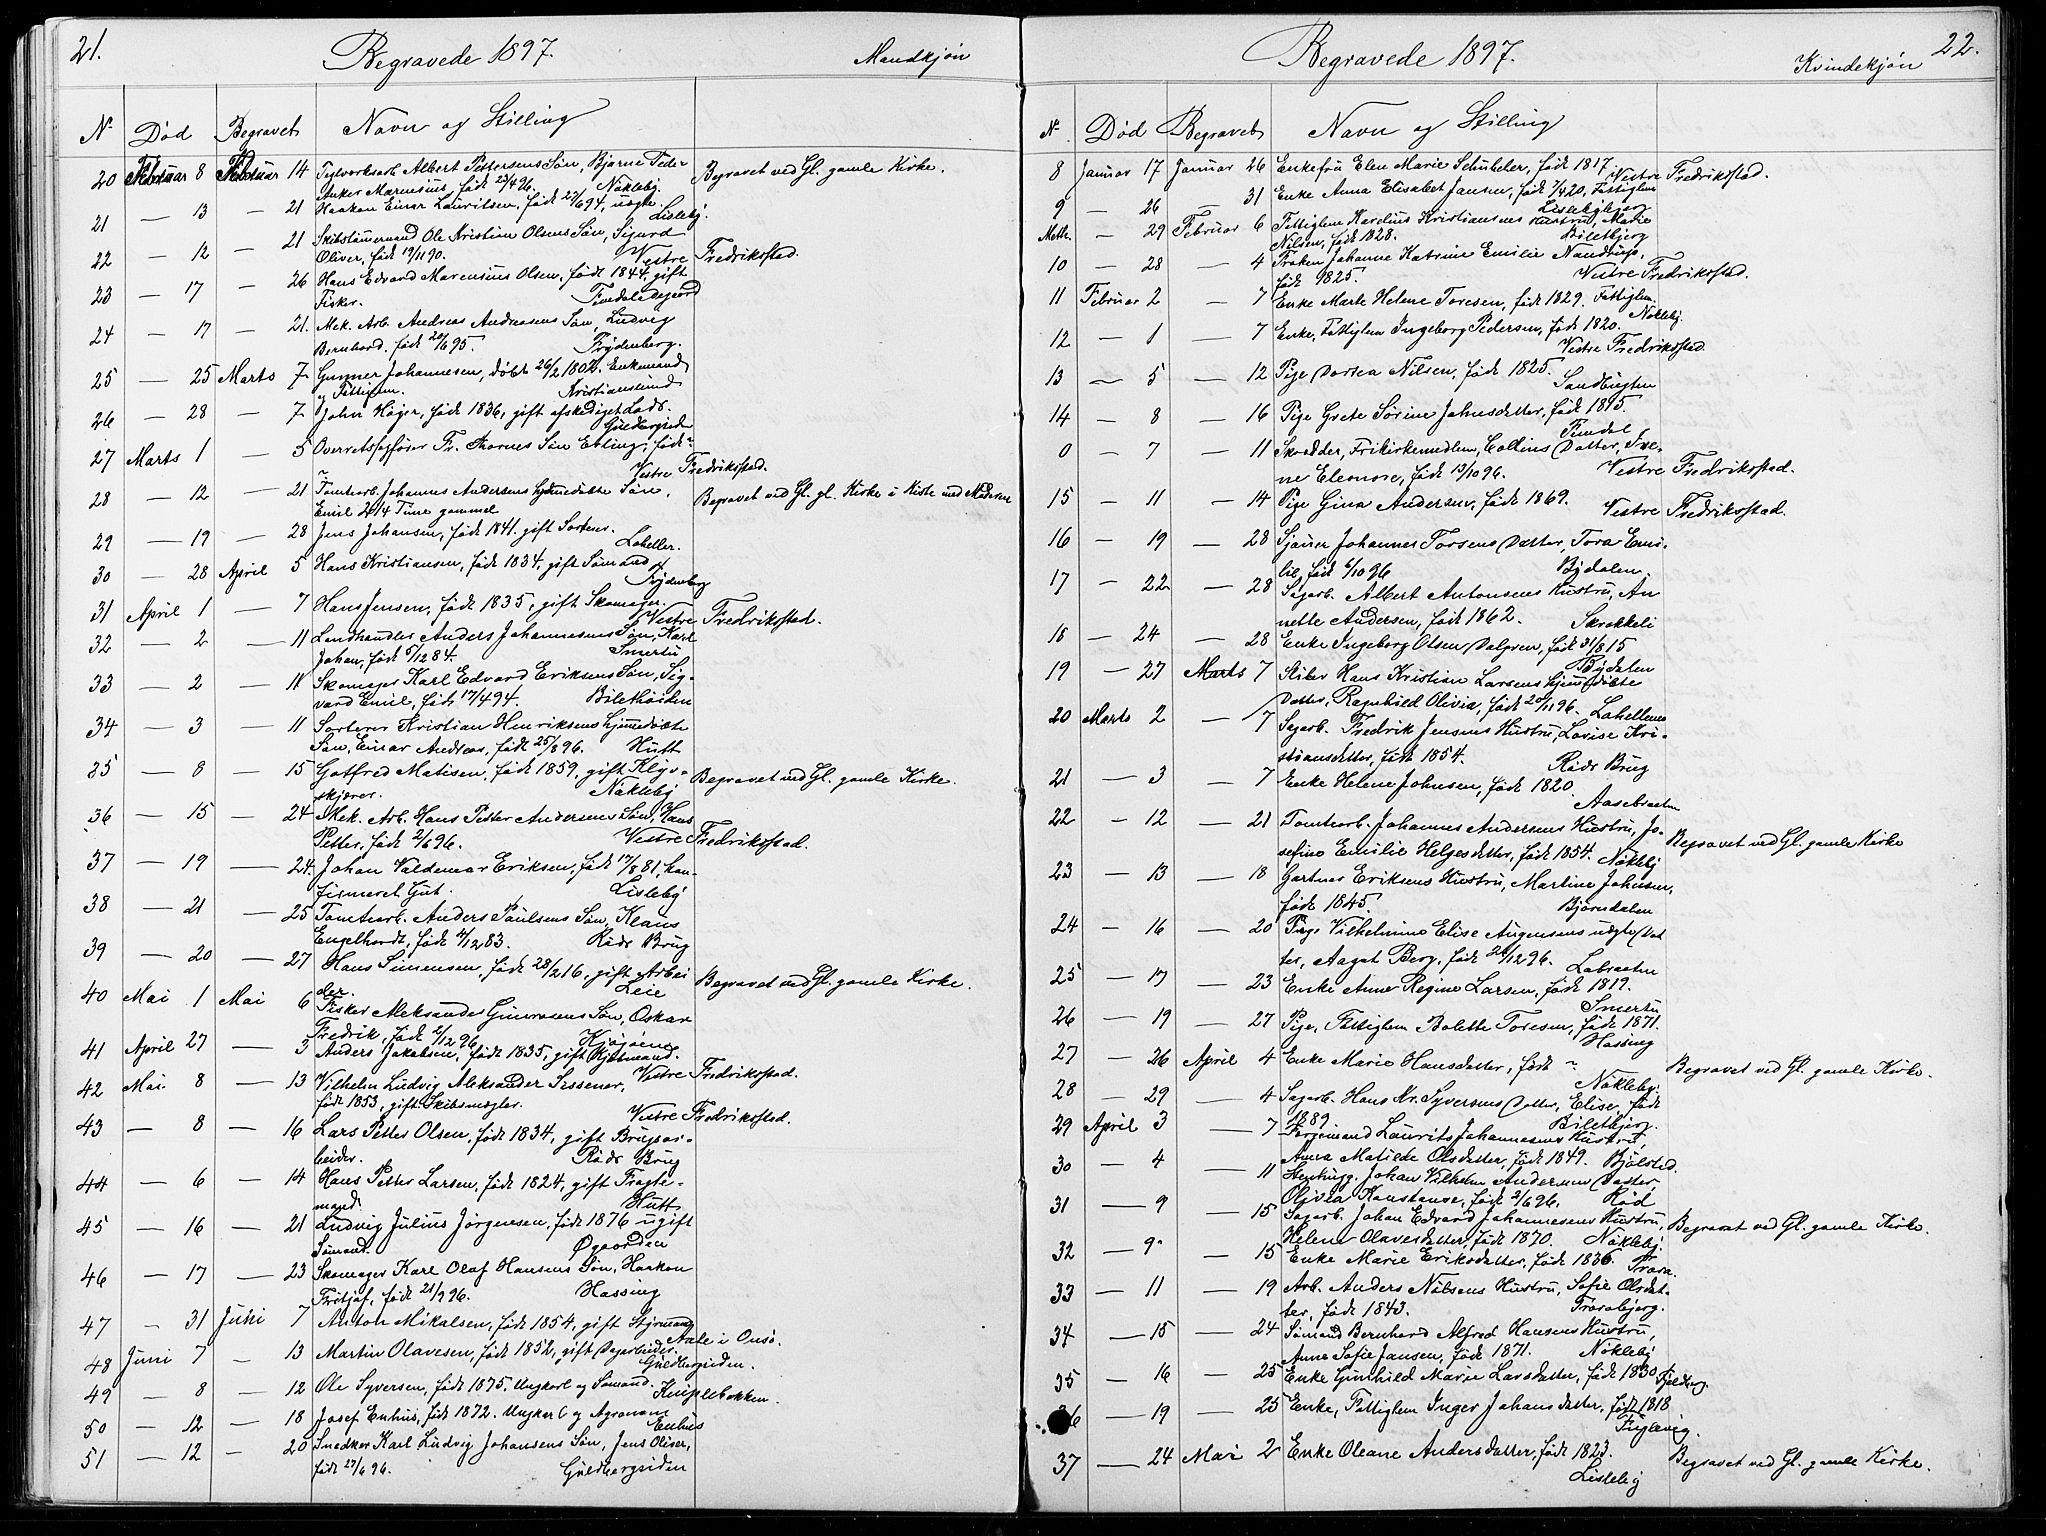 21.
Begravede 1897.
Mandkjøn
Nº Død Begravet Navn og Stilling
20 Februar 8 Februar 14 Teglverksarb. Albert Pettersens Søn, Bjarne Peder Begravet ved Gl. gamle Kirke.
Anker Marensius, født 23/4 96. Nøkleby.
21 — 13 — 21 Haakon Einar Lauritsen, født 22/6 94, uægte. Lisleby.
22 — 12 — 21 Skibstømermand Ole Kristian Olsens Søn, Sigurd
Oliver, født 19/11 90. Vestre Fredriksstad.
23 — 17 — 26 Hans Edvard Marensius Olsen, født 1844, gift
Fisker.
24 — 17 — 21. Mek. Arb. Andreas Andreasens Søn, Ludvig
Bernhard, født 20/6 95. Frydenberg.
25 — 25 Marts 7 Gunner Johannesen, døbt 26/2 1802. Enkemand
og Fattiglem. Kristianslund
26 — 28 — 7 John Højer, født 1836, gift afskediget Lods.
Guldbergsiden
27 Marts 1 — 5 Overretssagfører Fr. Thornes Søn Ebling, født
Vestre Fredriksstad.
28 — 12 — 21 Tomtearb. Johannes Andersens hjemmedøbte Søn, Begravet ved Gl. gl. Kirke i Kiste med Moderen
Emil 2 1/4 Time gammel
29 — 19 — 28 Jens Johansen, født 1841. gift Sorterer.
Lahellen.
30 — 28 April 5 Hans Kristiansen, født 1834, gift Sømand
Frydenberg
31 April 1 — 7 Hans Jensen, født 1835, gift Skomager.
Vestre Fredriksstad.
32 — 2 — 11 Landhandler Anders Johannesens Søn, Karl
Johan, født 5/12 84. Smertu
33 — 2 — 11 Skomager Karl Edvard Eriksens Søn, Sig-
vard Emil, født 17/4 94. Biletholden
34 — 3 — 11 Sorterer Kristian Henriksens hjemmedøbte
Søn, Einar Andreas, født 25/8 96. Hutt
35 — 8 — 15 Gotfred Matisen, født 1859. gift Klyv- Begravet ved Gl. gamle Kirke.
skjærer. Nøkleby
36 — 15 — 24 Mek. Arb. Hans Petter Andersens Søn, Hans
Petter, født 2/6 96. Vestre Fredriksstad.
37 — 19 — 24. Johan Valdemar Eriksen, født 17/8 81, kon-
firmeret Gut. Lisleby
38 — 21 — 25 Tomtearb. Anders Paulsens Søn, Klaus
Engelhardt, født 4/12 83. Råds Brug
39 — 20 — 27 Hans Simensen, født 28/2 16, gift Arbei Begravet ved Gl. gamle Kirke.
der. Leie
40 Mai 1 Mai 6 Fisker Aleksander Gunerosens Søn, Oskar
Fredrik, født 2/12 96
41 April 27 — 3 Anders Jakobsen, født 1835, gift
Vestre Fredriksstad.
42 Mai 8 — 13 Vilhelm Ludvig Aleksander Sissener,
født 1853, gift Skibsmægler.
Vestre Fredriksstad.
43 — 8 — 16 Lars Petter Olsen, født 1834, gift Brugsar-
beider. Råds Brug
44 — 6 — 14 Hans Petter Larsen, født 1824, gift Fragte-
mand. Hutt
45 — 16 — 21 Ludvig Julius Jørgensen, født 1876 ugift
Sømand. Øgaarden
46 — 17 — 23 Skomager Karl Olaf Hansens Søn, Haakon
Fritjof, født 21/9 96. Hassing
47 — 31 Juni 7 Anton Mikalsen, født 1854, gift Styrmand
Aale i Onsø.
48 Juni 7 — 13 Martin Olavesen, født 1852, gift Dagarbeider.
Guldbergsiden.
49 — 8 — 12 Ole Syversen, født 1875. Ungkarl og Sømand.
Kniplebakken.
50 — 12 — 18 Josef Enhus, født 1872. Ungkarl og Agronom
Enhus
51 — 12 — 20 Snedker Karl Ludvig Johansens Søn, Jens Oliver,
født 27/6 96. Guldbergsiden
Begravede 1897.
Kvindekjøn
22.
Nº Død Begravet Navn og Stilling
8 Januar 17 Januar 26 Enkefru Elen Marie Schübeler, født 1817
Vestre Fredriksstad.
9 — 26 — 31 Enke Anna Elisabet Jansen, født 7/4 20, Fattiglem
Lislebybjerg
Mellr. — 29 Februar 6 Fattiglem Karelius Kristiansens Hustru, Marie
Nilsen, født 1828. Biletbjerg
10 — 28 — 4 Frøken Johanne Katrine Emilie Nandrup,
født 1825. Vestre Fredriksstad.
11 Februar 2 — 7 Enke Marte Helene Toresen, født 1829. Fattiglem.
Nøkleby.
12 — 1 — 7 Enke, Fattiglem Ingeborg Pedersen, født 1820.
Vestre Fredriksstad
13 — 5 — 12 Pige Dortea Nilsen, født 1825.
Sandbugten
14 — 8 — 16 Pige Grete Sørine Johnsdatter, født 1815.
0 — 7 — 11 Skrædder, Frikirkemedlem, Collins Datter, Ire-
ne Eleonore, født 13/10 96. Vestre Fredriksstad.
15 — 11 — 14 Pige Gina Andersen, født 1869.
Vestre Fredriksstad.
16 — 19 — 28 Sjauer Johannes Torsens Datter, Tora Emi-
lie, født 6/10 96 Bydalen.
17 — 22 — 28 Sagarb. Albert Antonsens Hustru, An
nette Andersen, født 1862. Skrekkeli
18 — 24 — 28 Enke Ingeborg Olsen Dalgren, født 31/8 15
Bydalen
19 — 27 Marts 7 Stiler Hans Kristian Larsens hjemmedøbte
Datter, Ragnhild Olivia, født 20/11 96. Lahellene
20 Marts 2 — 7 Sagarb. Fredrik Jensens Hustru, Lovise Kri-
stiansdatter, født 1854. Råds Brug
21 — 3 — 7 Enke Helene Johnsen, født 1820.
Aasebraaten
22 — 12 — 21 Tomtearb. Johannes Andersens Hustru, Jo- Begravet ved Gl. gamle Kirke
sefine Emilie Helgesdatter, født 1854. Nøkleby
23 — 13 — 18 Gartner Eriksens Hustru, Martine Johnsen,
født 1845. Bjørndalen
24 — 16 — 20 Pige Vilhelmine Elise Augensens uægte Dat
ter, Aagot Berg, født 26/12 96. Labraaten
25 — 17 — 23 Enke Anne Regine Larsen, født 1819.
Smertu
26 — 19 — 27 Pige, Fattiglem Bolette Toresen, født 1871.
Hassing
27 — 26 April 4 Enke Marie Hansdatter, født ~ Begravet ved Gl. gamle Kirke.
Nøkleby.
28 — 29 — 4 Sagarb. Hans Kr. Syversens Datter, Elise, født
1889 Biletbjerg.
29 April 3 — 7 Formand Laurits Johannesens Hustru,
Anna Matilde Olsdatter, født 1849. Bjølstad.
30 — 4 — 11 Stenhugg. Johan Vilhelm Andersens Datter
Olivia Konstanse, født 2/6 96. Rød
31 — 9 — 15 Sagarb. Johan Edvard Johannesens Hustru, Begravet ved Gl. gamle Kirke.
Helene Olavesdatter, født 1870. Nøkleby.
32 — 9 — 15 Enke Marie Eriksdatter, født 1836. Trara.
33 — 11 — 19 Arb. Anders Nilsens Hustru, Sofie Olsdat-
ter, født 1843. Trarabjerg.
34 — 15 — 24 Sømand Bernhard Alfred Hansens Hustru,
Anne Sofie Jansen, født 1871. Nøkleby
35 — 16 — 25 Enke Gunhild Marie Larsdatter, født 1830 Fjeldberg.
36 — 19 — 25 Enke, Fattiglem Inger Johansdatter, født 1818
Fuglevig.
37 — 24 Mai 2 Enke Oleane Andersdatter, født 1823. Begravet ved Gl. gamle Kirke.
Lisleby